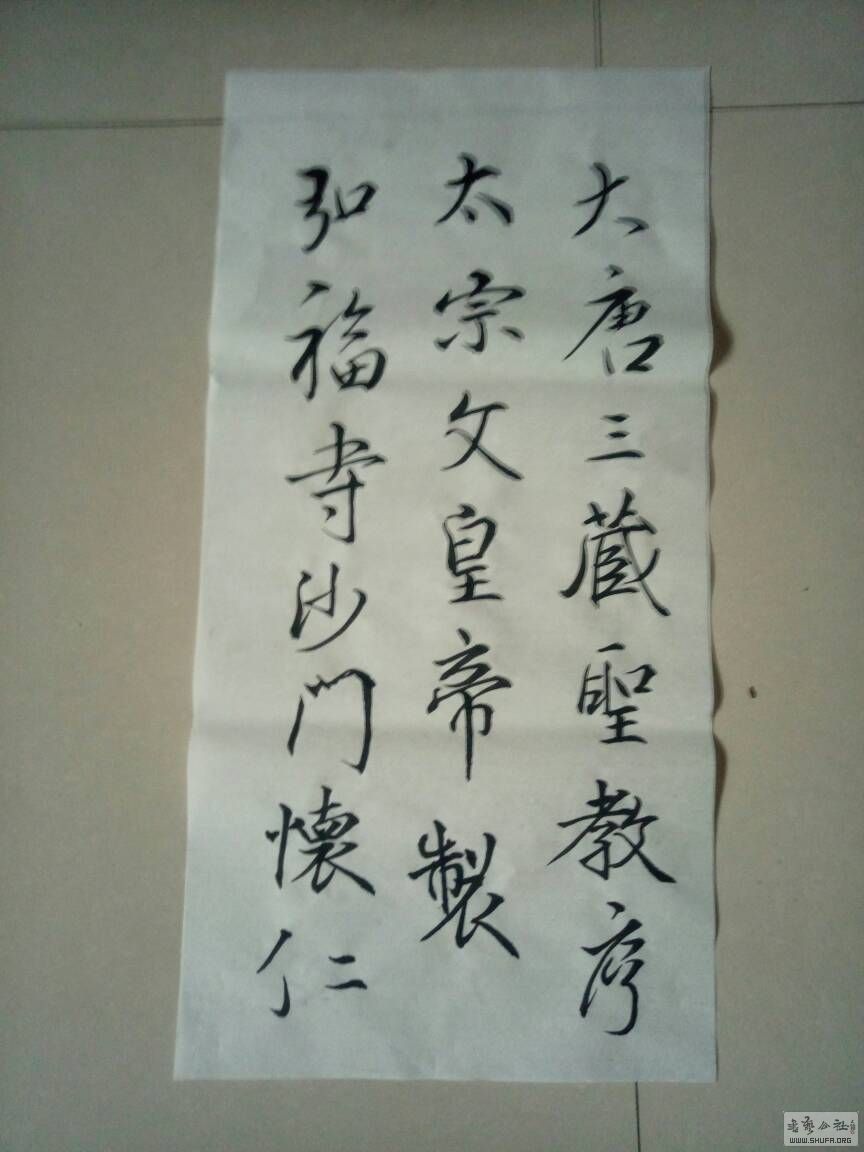 大唐三蔵聖教序
太宗文皇帝製
弘福寺沙門懷仁
书艺公社
WWW.SHUFA.ORG